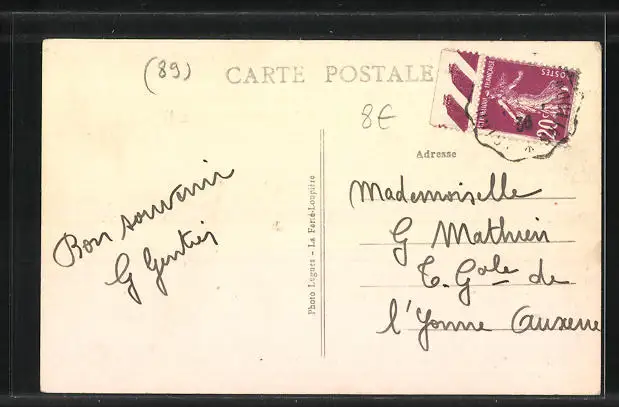 (89)
CARTE POSTALE
8€
POSTES
FRANÇAISE
20c
36
Adresse
Bon souvenir
G Gentis
Photo Legues - La Ferté-Loupière
Mademoiselle
G Mathieu
T. Gale de
l'Yonne Auxerre